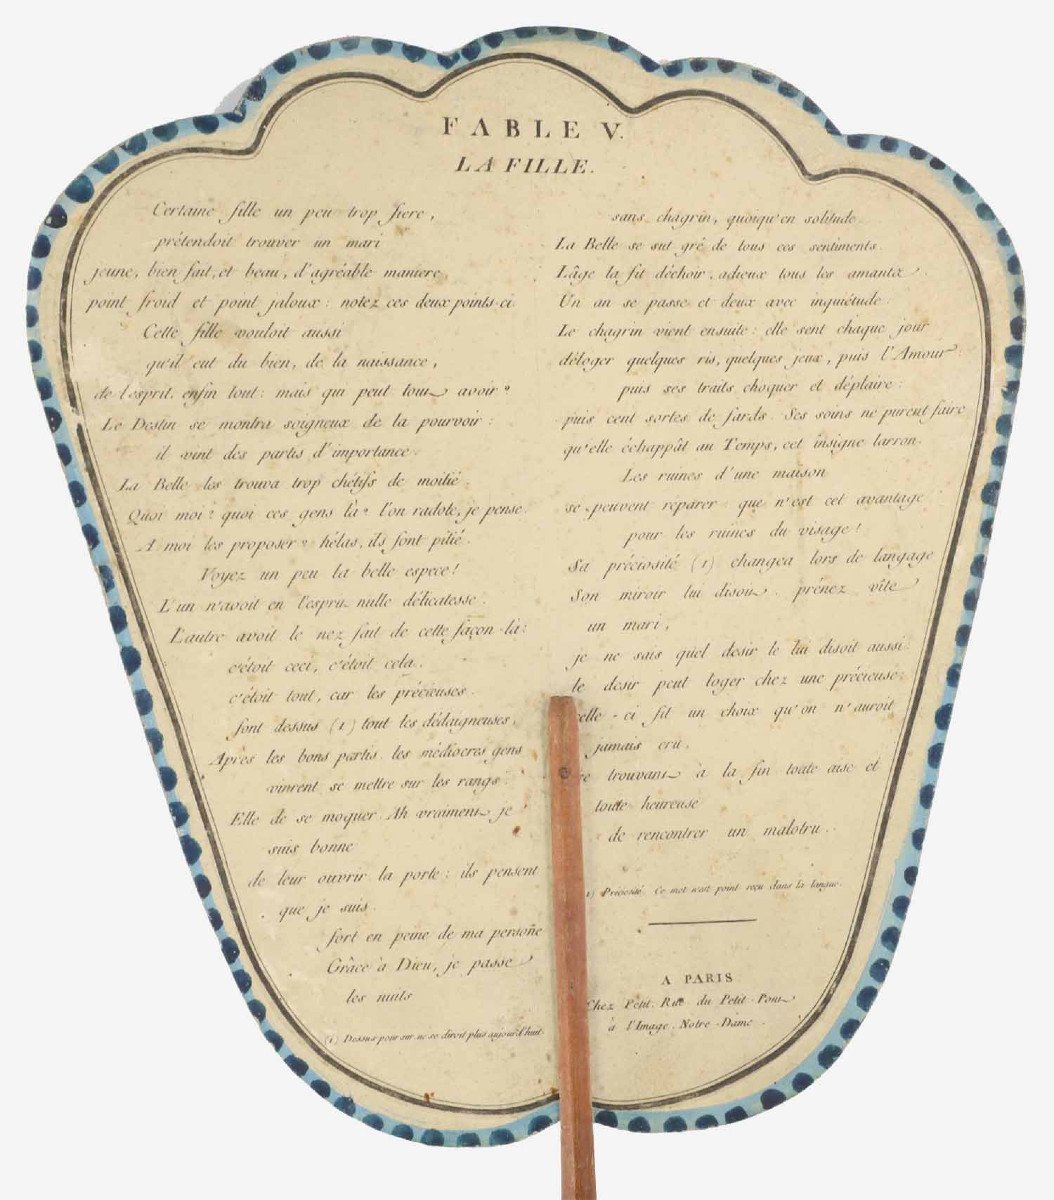 FABLE V.
LA FILLE.
Certaine fille un peu trop fiere,
prétendoit trouver un mari
jeune, bien fait, et beau, d'agréable maniere,
point froid et point jaloux : notez ces deux points-ci.
Cette fille vouloit aussi
qu'il eut du bien, de la naissance,
de l'esprit, enfin tout : mais qui peut tout avoir ?
Le Destin se montra soigneux de la pourvoir :
il vint des partis d'importance.
La Belle les trouva trop chétifs de moitié :
Quoi moi ? quoi ces gens là ? l'on radote, je pense.
A moi les proposer ? hélas, ils font pitié.
Voyez un peu la belle espece !
L'un n'avoit en l'esprit nulle délicatesse.
L'autre avoit le nez fait de cette façon là :
c'étoit ceci, c'étoit cela.
c'étoit tout, car les précieuses
font dessus (1) tout les dédaigneuses.
Après les bons partis, les médiocres gens
vinrent se mettre sur les rangs :
Elle de se moquer. Ah vraiment je
suis bonne
de leur ouvrir la porte : ils pensent
que je suis
fort en peine de ma persoñe
Grâce à Dieu, je passe
les nuits
(1) Dessus pour sur ne se diroit plus aujourd'huit.
sans chagrin, quoiqu'en solitude.
La Belle se sut gré de tous ces sentiments.
L'âge la fit déchoir, adieux tous les amants.
Un an se passe et deux avec inquiétude.
Le chagrin vient ensuite : elle sent chaque jour
déloger quelques ris, quelques jeux, puis l'Amour
puis ses traits choquer et déplaire :
puis cent sortes de fards. Ses soins ne purent faire
qu'elle échappât au Temps, cet insigne larron.
Les ruines d'une maison
se peuvent réparer : que n'est cet avantage
pour les ruines du visage !
Sa préciosité (1) changea lors de langage
Son miroir lui disoit : prénez vîte
un mari,
je ne sais quel desir le lui disoit aussi.
le desir peut loger chez une précieuse.
celle-ci fit un choix qu'on n'auroit
jamais crû,
se trouvant à la fin toute aise et
toute heureuse
de rencontrer un malotru.
1) Préciosité. Ce mot n'est point reçu dans la langue.
A PARIS
Chez Petit, Rue du Petit-Pont
à l'Image Notre-Dame.